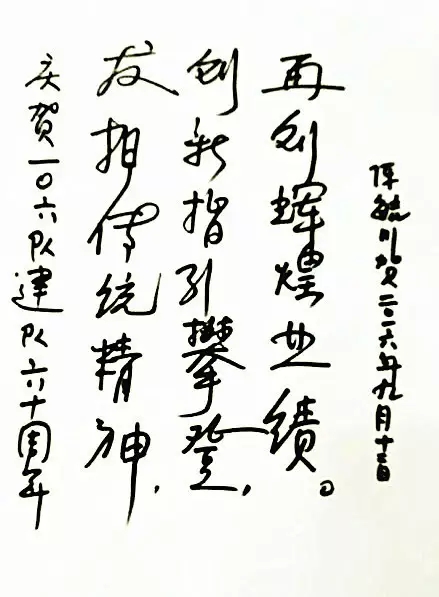 庆贺一0六队建队六十周年
发扬传统精神，
创新指引攀登，
再创辉煌业绩。
陈毓川贺二0一六年九月十二日